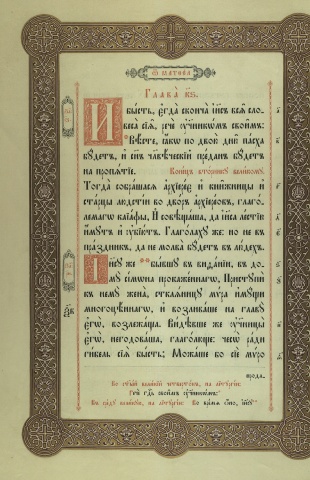 Ѿ матѳеа
Глава к҃ѕ.
И бысть, є҆гда̀ сконча̀ і҆и҃съ всѧ̑ сло-
веса̀ сїѧ̑, речѐ ᲂу҆ченикѡ́мъ свои̑мъ:
Вѣ́сте, ꙗ҆́кѡ по двою̀ дні́ю па́сха
бꙋ́детъ, и҆ сн҃ъ чл҃вѣ́ческїй пре́данъ бꙋ́детъ
на пропѧ́тїе. Коне́цъ вто́рникꙋ вели́комꙋ.
Тогда̀ собра́шасѧ а҆рхїере́є и҆ кни́жницы и҆
ста́рцы лю́дстїи во дво́ръ а҆рхїере́овъ, глаго́-
лемагѡ каїа́фы, И҆ совѣща́ша, да і҆и҃са ле́стїю
и҆́мꙋтъ и҆ ᲂу҆бїю́тъ. Глаго́лахꙋ же: но не въ
пра́здникъ, да не молва̀ бꙋ́детъ въ лю́дехъ.
І҆и҃сꙋ же бы́вшꙋ въ виѳа́нїи, въ до-
мꙋ̀ сі́мѡна прокаже́ннагѡ, Пристꙋпѝ
къ немꙋ̀ жена̀, стклѧ́ницꙋ мѵ́ра и҆мꙋ́щи
многоцѣ́ннагѡ, и҆ возлива́ше на главꙋ̀
є҆гѡ̀, возлежа́ща. Ви́дѣвше же ᲂу҆ченицы̀
є҆гѡ̀, негодова́ша, глаго́люще: чесѡ̀ ра́ди
ги́бель сїѧ̀ бы́сть; Можа́ше бо сїѐ мѵ́ро